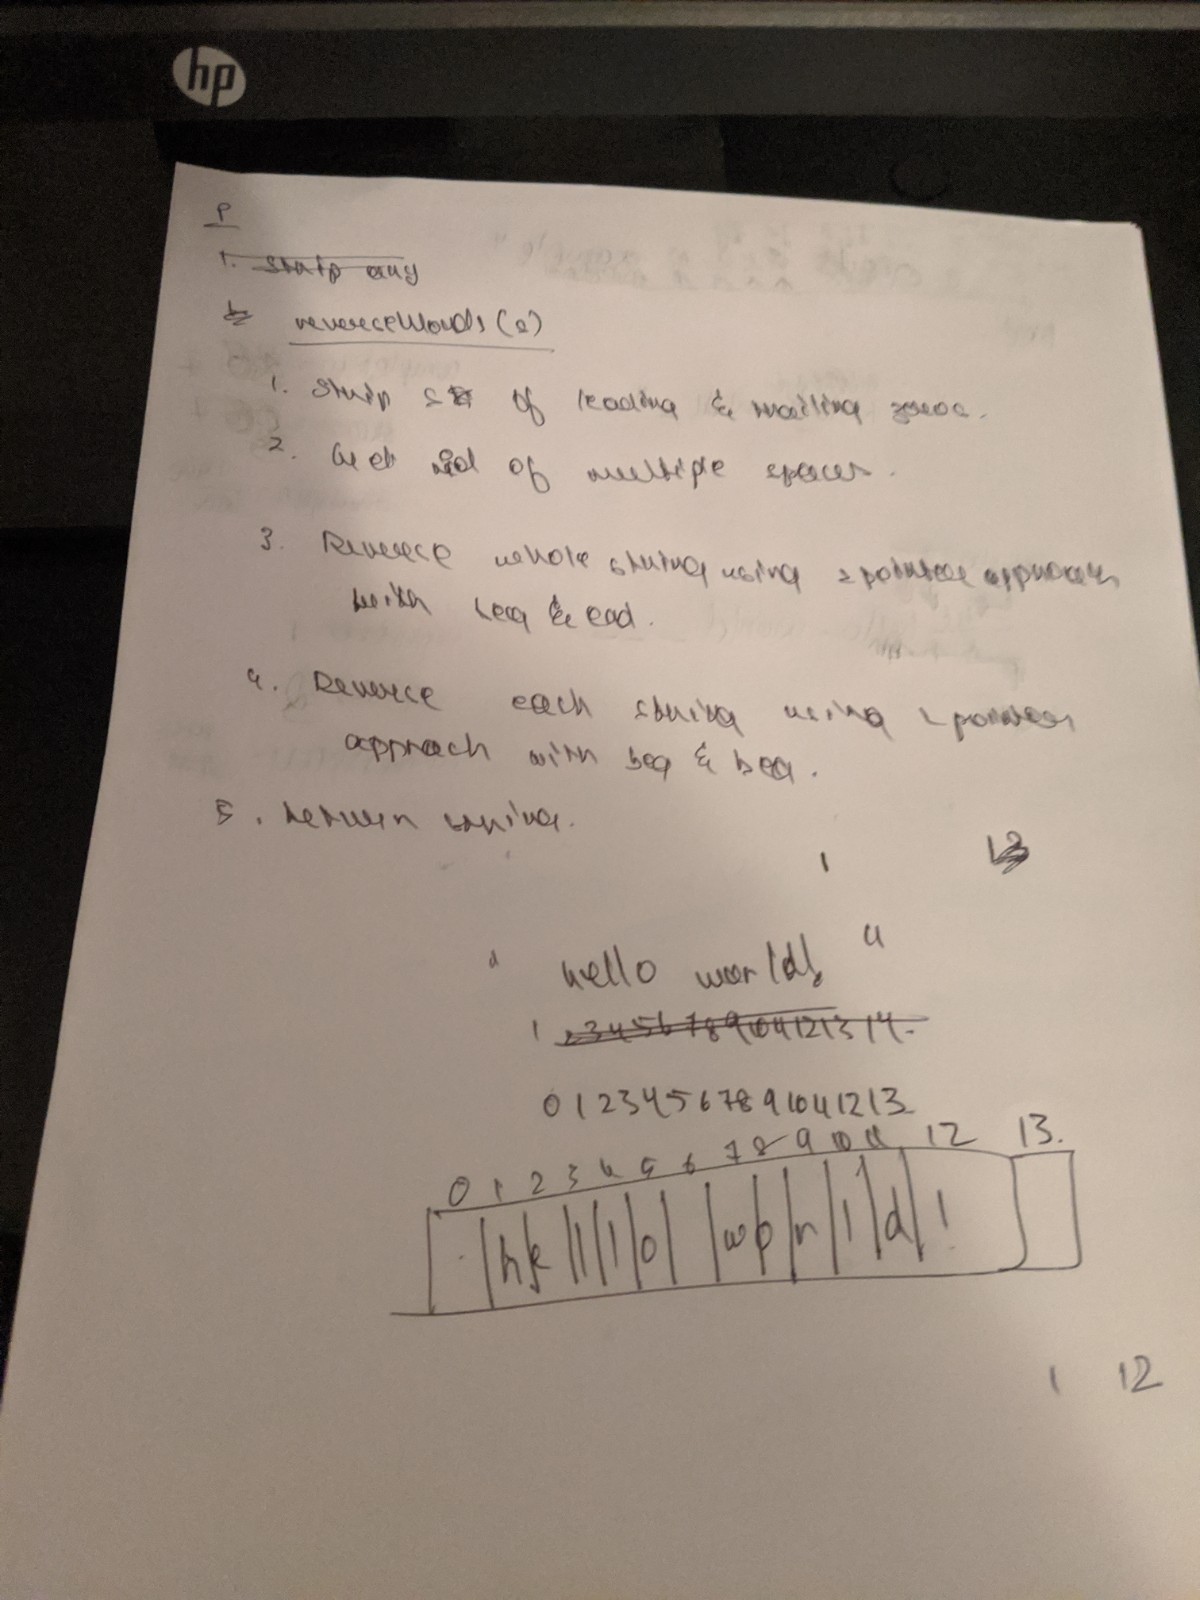 hp
P
1. strip any
reverseWords(s)
1. Strip s of leading & trailing zeros.
2. Get rid of multiple spaces.
3. Reverse whole string using 2 pointer approach
with beg & end.
4. Reverse each string using 2 pointer
approach with beg & beg.
5. return string.
1 13
" hello world! "
1 2 3 4 5 6 7 8 9 10 11 12 13 14
0 1 2 3 4 5 6 7 8 9 10 11 12 13
0 1 2 3 4 5 6 7 8 9 10 11 12 13.
h e l l o w o r l d !
1 12